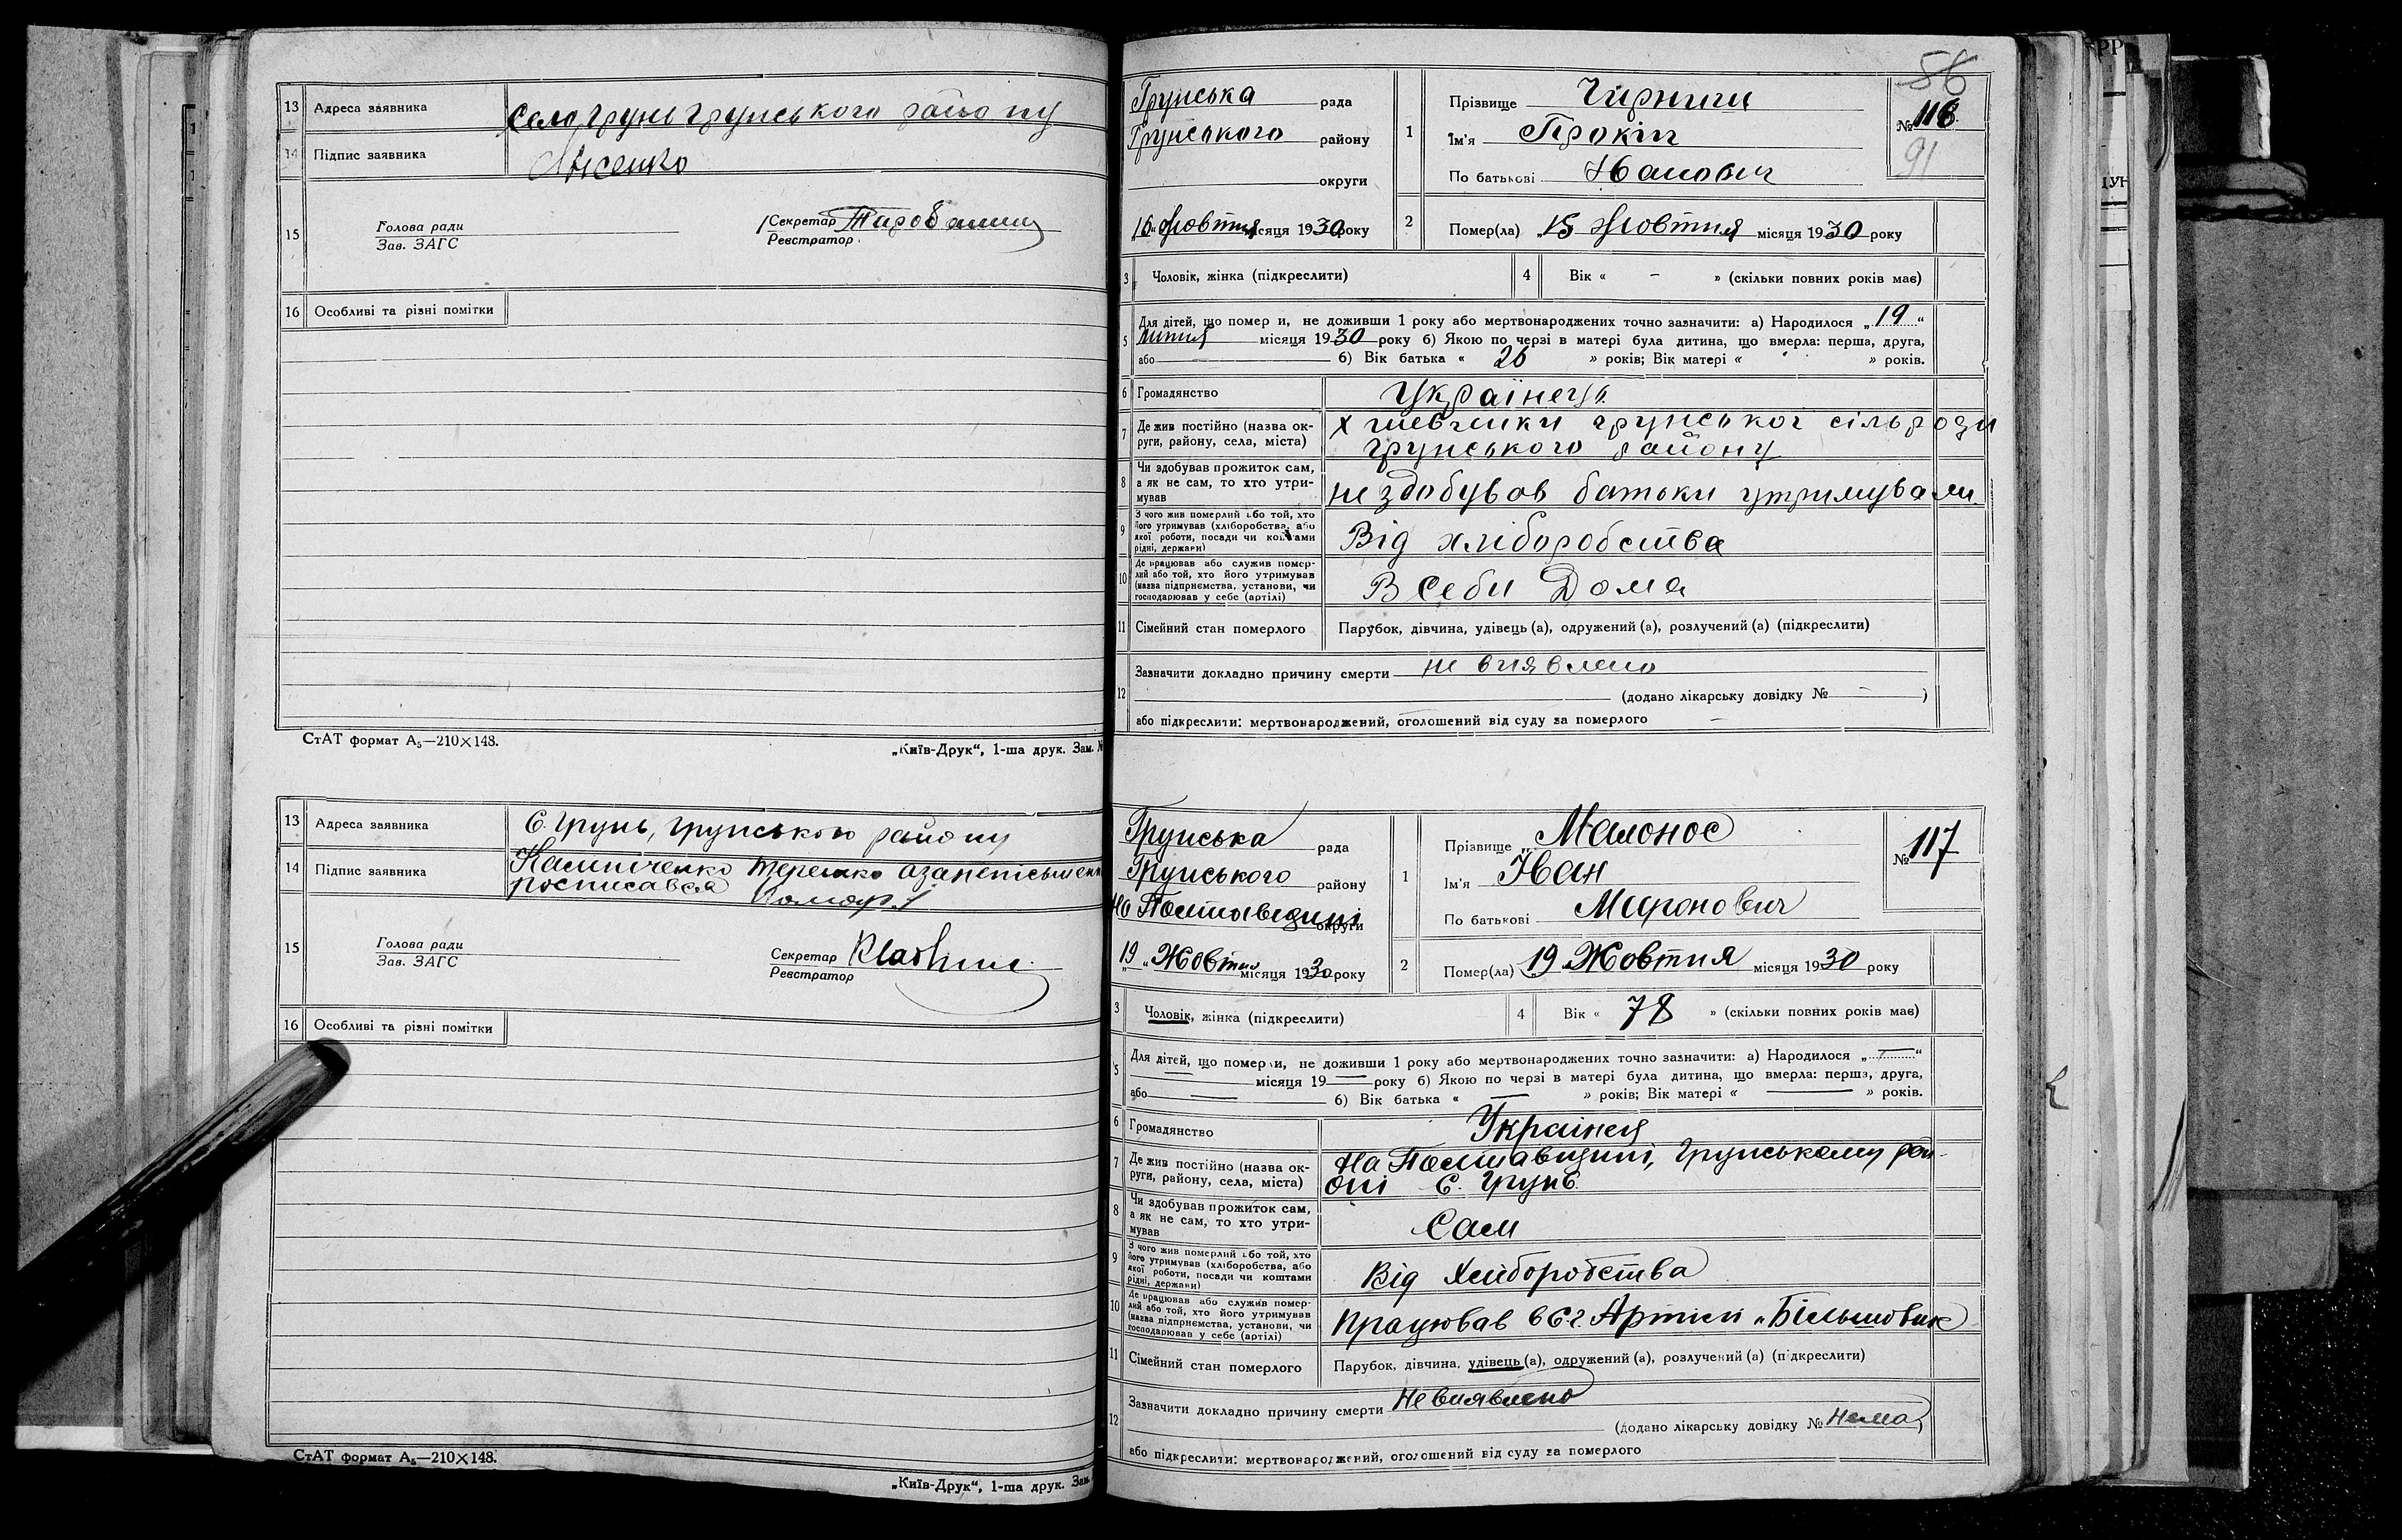 13 Адреса заявника Село, Грунь Грунського району
14 Підпис заявника Лисенко
15 Голова ради
Зав. ЗАГС
Секретар
Реєстратор
16 Особливі та різні помітки
СтАТ формат А₅—210×148.
„Київ-Друк“, 1-ша друк. Зам. №
13 Адреса заявника С. Грунь, Грунського району
14 Підпис заявника
росписався
15 Голова ради
Зав. ЗАГС
Секретар
Реєстратор
16 Особливі та різні помітки
СтАТ формат А₅—210×148.
„Київ-Друк“, 1-ша друк. Зам.
56
Грунська рада
Грунського району
округи
„16“ Жовтня місяця 1930 року
1 Прізвище
Ім'я Прокіп
По батькові Іванович
№ 116
91
2 Помер(ла) „15 Жовтня місяця 1930 року
3 Чоловік, жінка (підкреслити)
4 Вік « – » (скільки повних років має)
5 Для дітей, що помер и, не доживши 1 року або мертвонароджених точно зазначити: а) Народилося „19“
липня місяця 1930 року б) Якою по черзі в матері була дитина, що вмерла: перша, друга,
або — б) Вік батька « 26 » років; Вік матері « » років.
6 Громадянство Українець
7 Де жив постійно (назва округи, району, села, міста) х Шевченки Грунської сільради
Грунського району
8 Чи здобував прожиток сам, а як не сам, то хто утримував не здобував батьки утримували
9 З чого жив померлий або той, хто його утримував (хліборобства, або якої роботи, посади чи коштами рідні, держави) Від хліборобства
10 Де працював або служив померлий або той, хто його утримував (назва підприємства, установи, чи господарював у себе (артілі) В себи Дома
11 Сімейний стан померлого Парубок, дівчина, удівець (а), одружений (а), розлучений (а) (підкреслити)
12 Зазначити докладно причину смерти не виявлено
(додано лікарську довідку № — )
або підкреслити: мертвонароджений, оголошений від суду за померлого –
Грунська рада
Грунського району
На Полтавщині округи
„19“ Жовтня місяця 1930 року
1 Прізвище Малонос
Ім'я Іван
По батькові Миронович
№ 117
2 Помер(ла) „19 Жовтня місяця 1930 року
3 Чоловік, жінка (підкреслити)
4 Вік « 78 » (скільки повних років має)
5 Для дітей, що помер и, не доживши 1 року або мертвонароджених точно зазначити: а) Народилося „—“
— місяця 19— року б) Якою по черзі в матері була дитина, що вмерла: перша, друга,
або — б) Вік батька « — » років; Вік матері « — » років.
6 Громадянство
7 Де жив постійно (назва округи, району, села, міста) На Полтавщині, Грунському рай-
оні С. Грунь
8 Чи здобував прожиток сам, а як не сам, то хто утримував Сам
9 З чого жив померлий або той, хто його утримував (хліборобства, або якої роботи, посади чи коштами рідні, держави) Від Хліборобства
10 Де працював або служив померлий або той, хто його утримував (назва підприємства, установи, чи господарював у себе (артілі) Працював в С-г Артілі „Більшовик
11 Сімейний стан померлого Парубок, дівчина, удівець (а), одружений (а), розлучений (а) (підкреслити)
12 Зазначити докладно причину смерти Невиявлено
(додано лікарську довідку № Нема)
або підкреслити: мертвонароджений, оголошений від суду за померлого